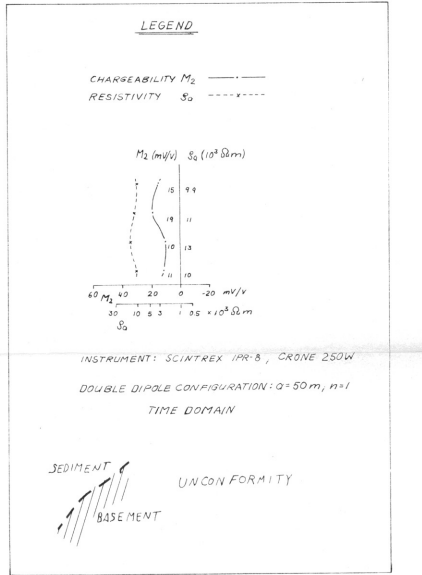 LEGEND
CHARGEABILITY M2
RESISTIVITY ρa
M2 (mV/V) ρa (10³ Ωm)
15 9.9
19 11
10 13
11 10
60 M2 40 20 0 -20 mV/V
30 10 5 3 1 0.5 ×10³ Ωm
ρa
INSTRUMENT: SCINTREX IPR-8, CRONE 250W
DOUBLE DIPOLE CONFIGURATION: a=50m, n=1
TIME DOMAIN
SEDIMENT
UNCONFORMITY
BASEMENT